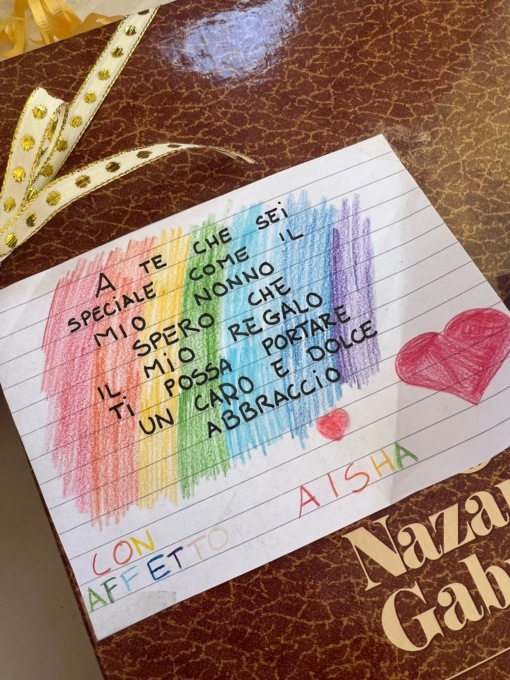 A TE CHE SEI
SPECIALE COME IL
MIO NONNO
SPERO CHE
IL MIO REGALO
TI POSSA PORTARE
UN CARO E DOLCE
ABBRACCIO
CON
AFFETTO
AISHA